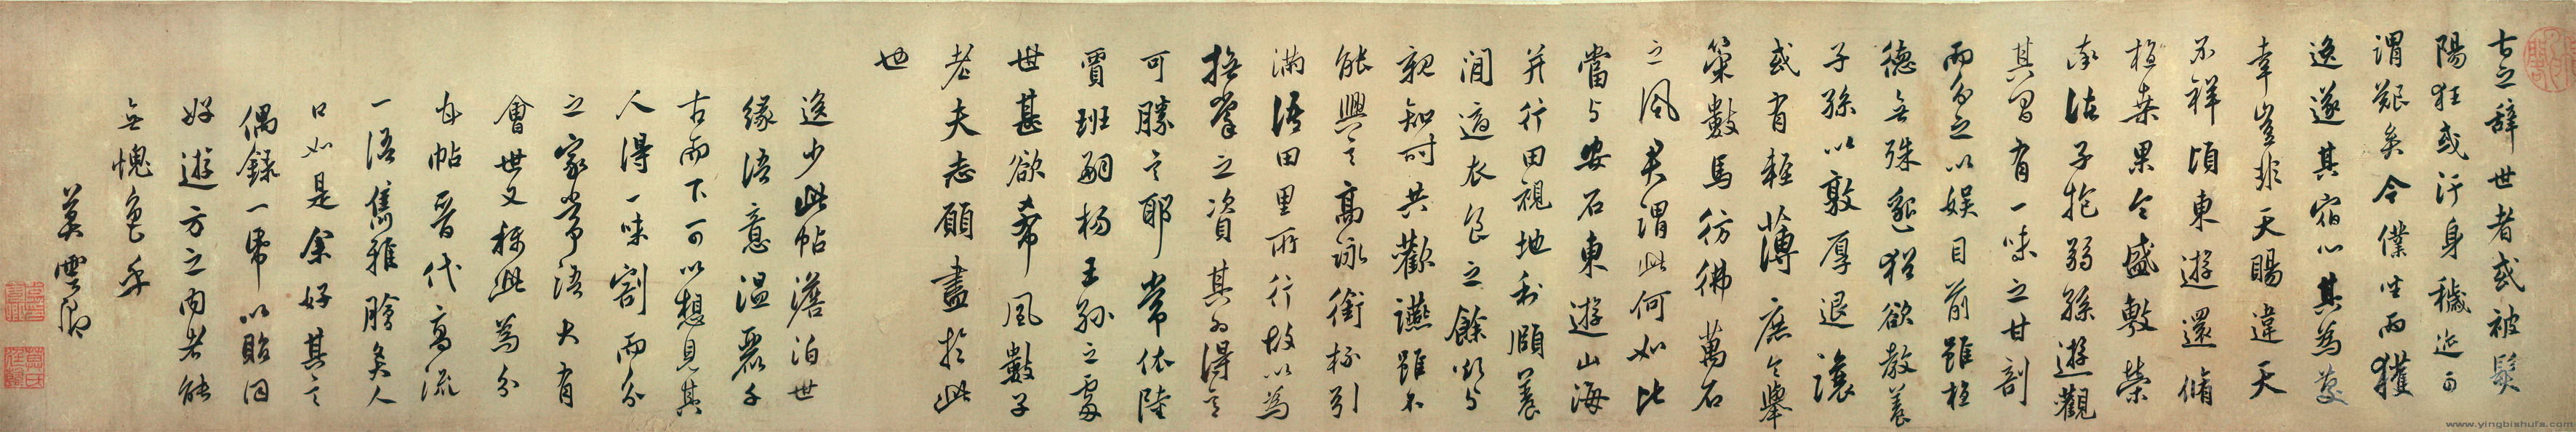 古之辞世者或被髮
陽狂或汙身穢迹可
謂艱矣今僕坐而獲
逸遂其宿心其為慶
幸豈非天賜違天
不祥頃東遊還脩
植桑果今盛敷榮
率諸子抱弱孫遊觀
其間有一味之甘割
而分之以娛目前雖植
德無殊邈猶欲教養
子孫以敦厚退讓
或有輕薄庶令舉
策數馬彷彿萬石
之風君謂此何如比
當与安石東遊山海
并行田視地利頤養
閒適衣食之餘欲与
親知時共歡讌雖不
能興言高詠銜杯引
滿語田里所行故以為
撫掌之資其為得意
可勝言耶常依陸
賈班嗣楊王孫之處
世甚欲希風數子
老夫志願盡於此
也
逸少此帖澹泊世
緣語意溫麗千
古而下可以想見其
人得一味割而分
之家常語大有
會世又称此為分
甘帖晉代高流
一語雋雅膾炙人
口如是余好其言
偶録一帋以貽同
好遊方之内者能
無愧色乎
莫雲卿
www.yingbishufa.com